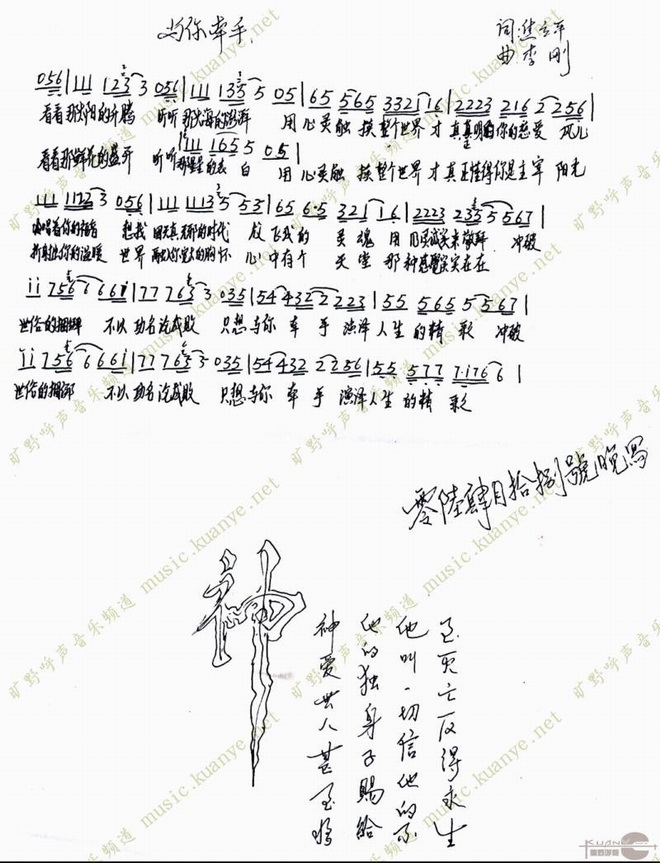 与你牵手
词:焦立平
曲 李刚
056|111 123 3 056|111 135 5 05|65 565 332116|2223 216 2 256|
看看那太阳的升腾 听听那大海的澎湃 用心灵触摸整个世界才真正明白你的慈爱 风儿
111655 05|
看看那鲜花的盛开 听听那星星的表白 用心灵触摸整个世界才真正懂得你是主宰 阳光
111 1123 056|111 1135 53|65 6·5 321 16|2223 235 5 567|
吟唱着你的 想我 天真无邪的时代 放飞我的灵魂 用 真诚来敬拜 冲破
折射出你的温暖 世界 融入你宽大的胸怀 心中有个天堂 那种感觉实实在在
ii756 6 66i|77763 3 035|54432 2 223|55 565 5 567|
世俗的捆绑 不以功名论成败 只想与你牵手演泽人生的精彩 冲破
ii756 6 66i|77765 3 035|54432 2256|55 577 7·176 6|
世俗的捆绑 不以功名论成败 只想与你牵手演泽人生的精彩
零陆肆月拾捌號晚写
神
神爱世人甚至将
他的独身子赐给
他叫一切信他的不
至灭亡反得永生
旷野呼声音乐频道 music.kuanye.net
KUANYE